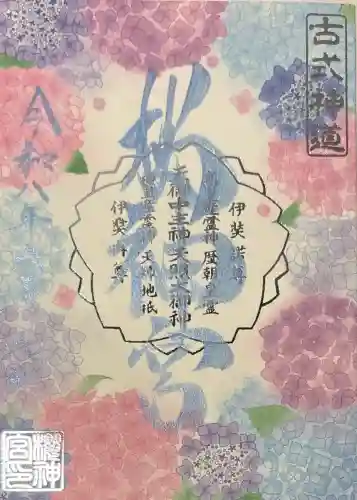 古式神道
伊奘諾尊
高皇産霊神歴朝皇霊
天御中主神天照大御神
神皇産霊神天神地祇
伊奘冊尊
櫻神宮
令和八年
櫻神宮印